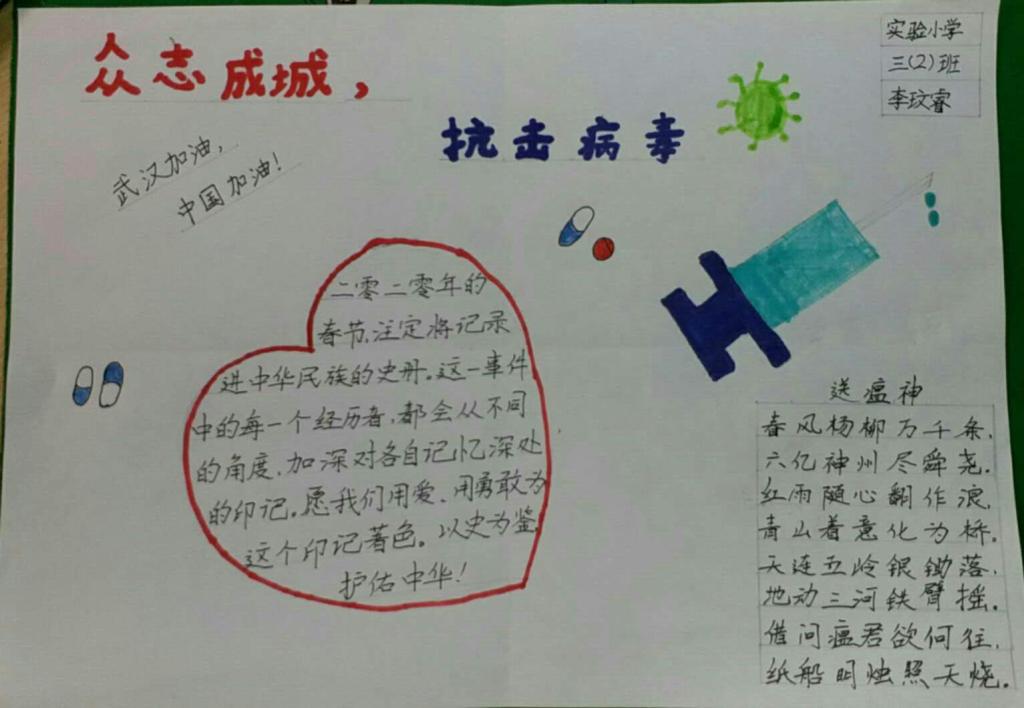 众志成城，
抗击病毒
实验小学
三(2)班
李玟睿
武汉加油，
中国加油！
二零二零年的
春节，注定将记录
进中华民族的史册。这一事件
中的每一个经历者，都会从不同
的角度，加深对各自记忆深处
的印记。愿我们用爱、用勇敢为
这个印记著色。以史为鉴，
护佑中华！
送瘟神
春风杨柳万千条，
六亿神州尽舜尧。
红雨随心翻作浪，
青山着意化为桥。
天连五岭银锄落，
地动三河铁臂摇。
借问瘟君欲何往，
纸船明烛照天烧。